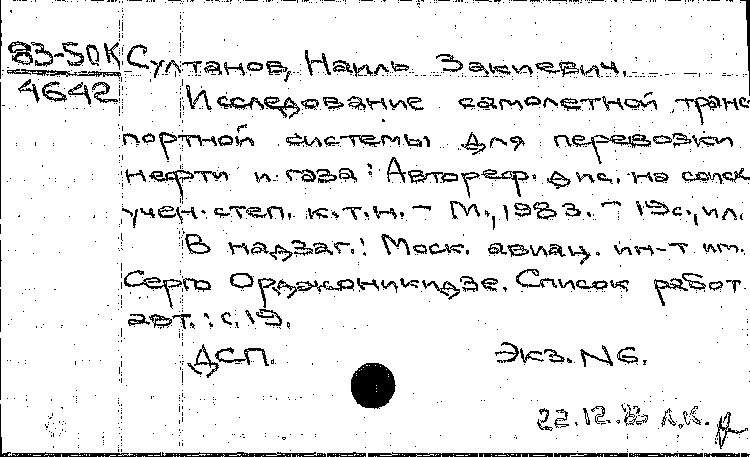 83-50К Султанов, Наиль Закиевич.
4642
Исследование самолетной транс
портной системы для перевозки
нефти и газа : Автореф. дис. на соиск
учен. степ. к.т.н. - М., 1983. - 19с., ил.
В надзаг.: Моск. авиац. ин-т им.
Серго Орджоникидзе. Список работ
авт.: с. 19.
ДСП. Экз. N6.
22.12.83 Л.К.